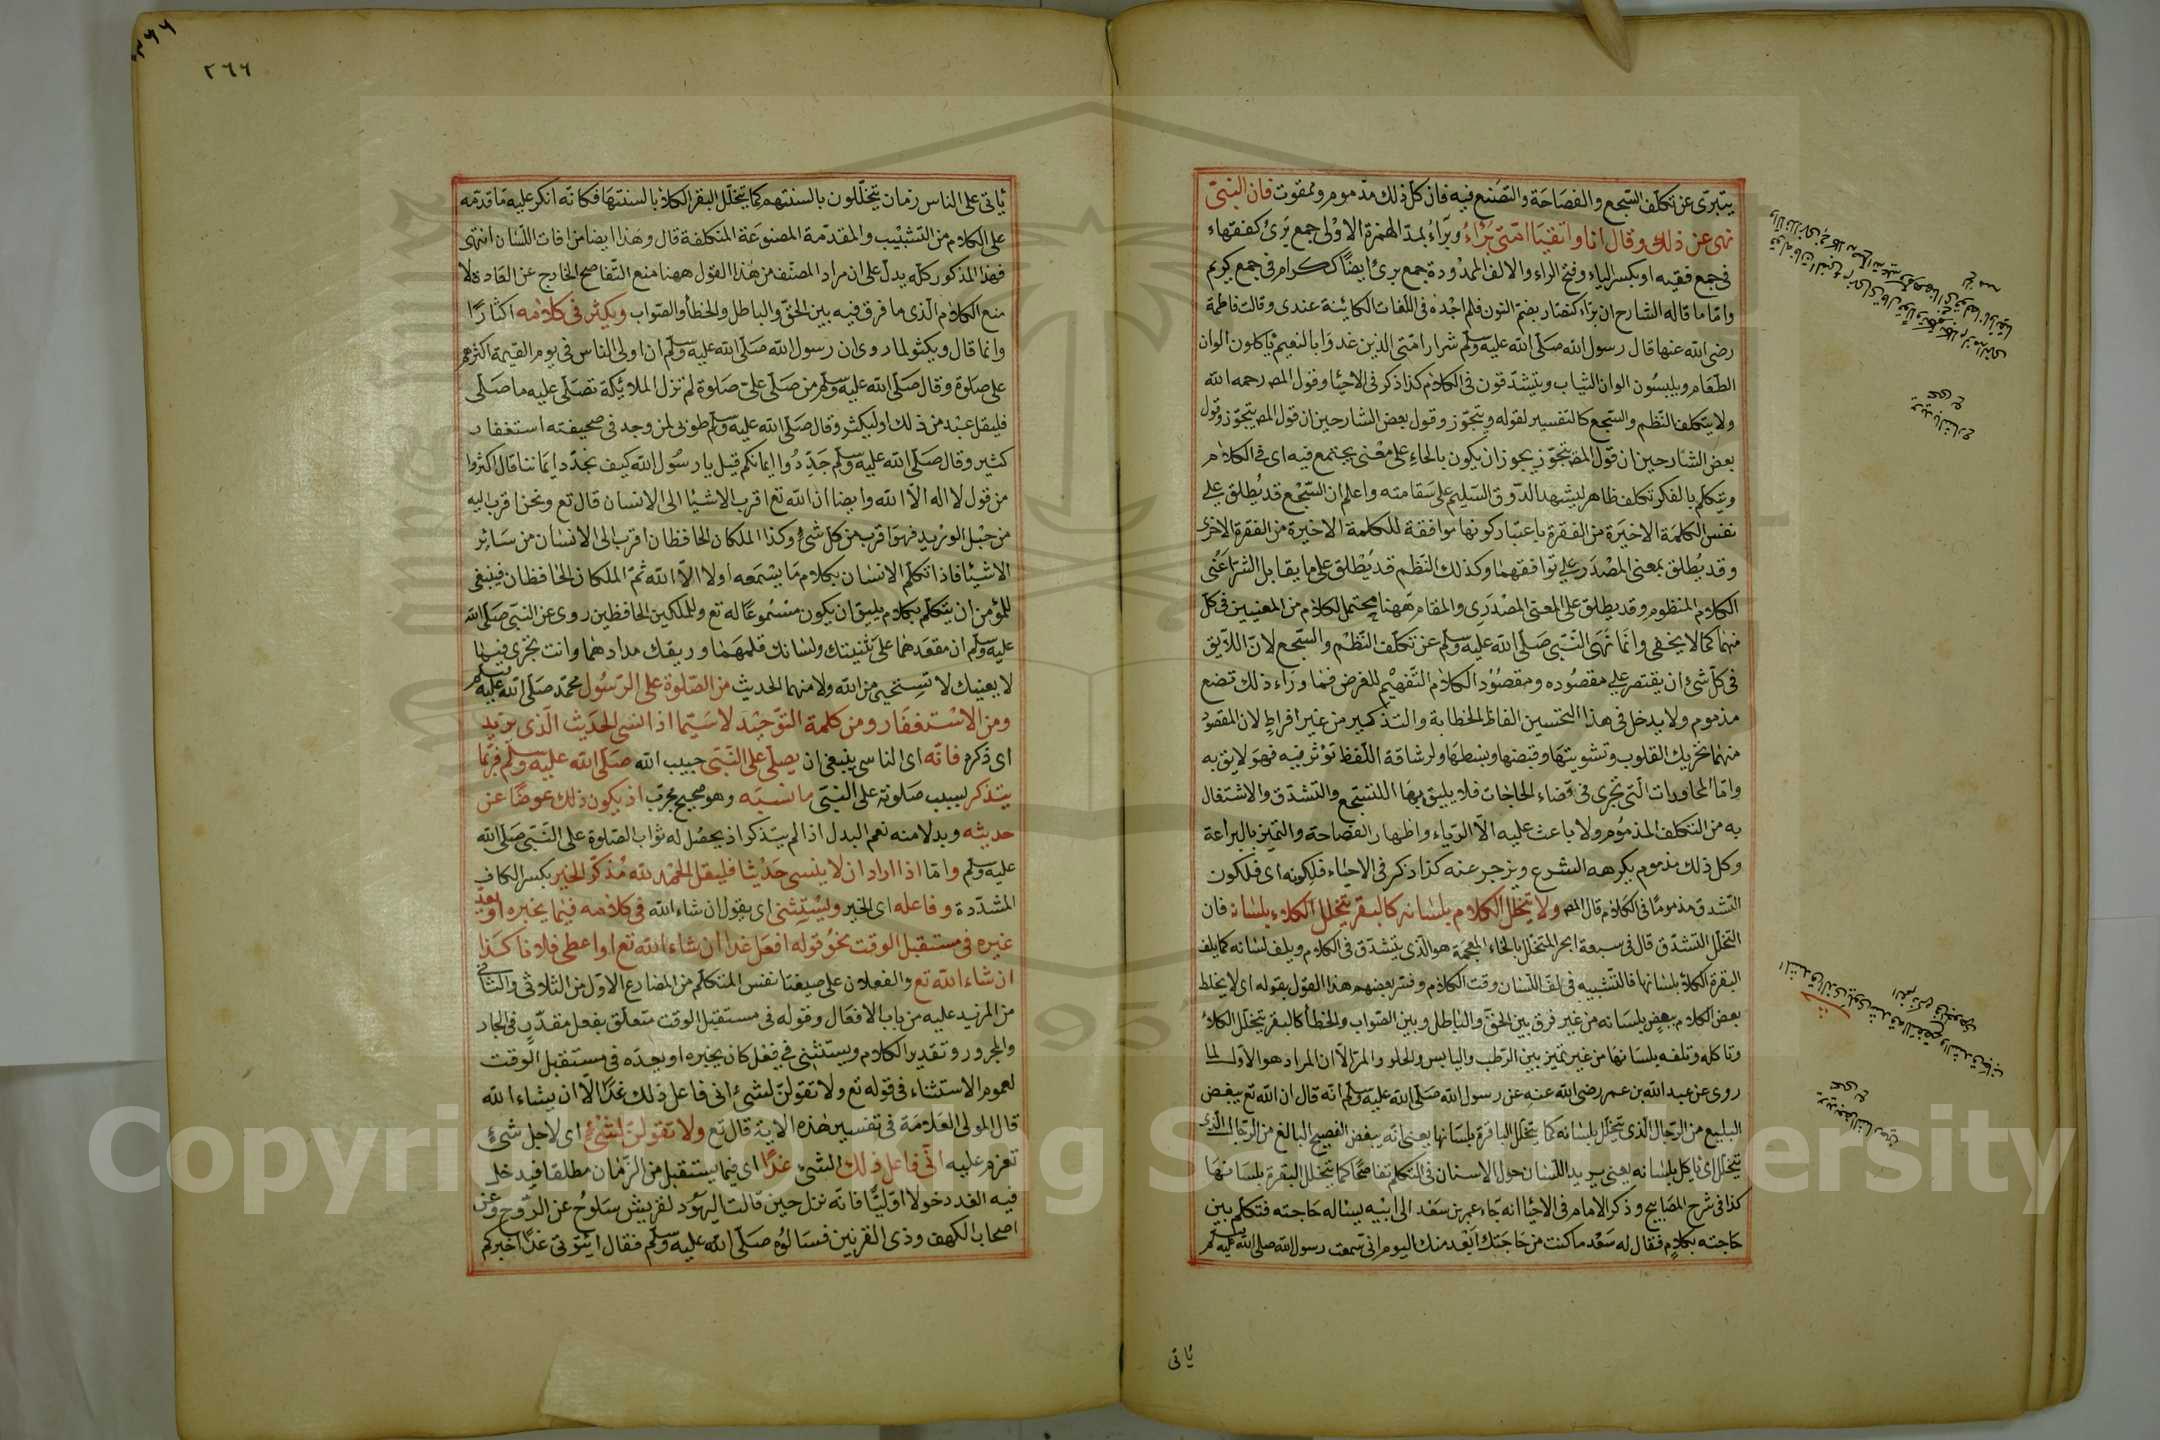 يتبرى عن تكلف السجع والفصاحة والتصنع فيه فان كل ذلك مذموم وممقوت فان النبى
نهى عن ذلك وقال انا واتقياء امتى برءاء وبراء بمد الهمزة الاولى جمع برئ كفقهاء
فى جمع فقيه او بكسر الباء وفتح الراء والالف الممدودة جمع برئ ايضا ككرام فى جمع كريم
واما ما قاله الشارح ان براء كنصار بضم النون فلم اجده فى اللغات الكائنة عندى وقالت فاطمة
رضى الله عنها قال رسول الله صلى الله عليه وسلم شرار امتى الذين غدوا بالنعيم ياكلون الوان
الطعام ويلبسون الوان الثياب ويتشدقون فى الكلام كذا ذكر فى الاحياء وقول المص رحمه الله
ولا يتكلف النظم والسجع كالتفسير لقوله ويتجوز وقول بعض الشارحين ان قول المص يتجوز وقول
بعض الشارحين ان قول المص يتجوز يجوز ان يكون بالحاء على معنى يجتمع فيه اى فى الكلام
ويتكلم بالفكر تكلف ظاهر ليشهد الذوق السليم على سقامته واعلم ان السجع قد يطلق على
نفس الكلمة الاخيرة من الفقرة باعتبار كونها موافقة للكلمة الاخيرة من الفقرة الاخرى
وقد يطلق بمعنى المصدر على توافقهما وكذلك النظم قد يطلق على ما يقابل النثر اعنى
الكلام المنظوم وقد يطلق على المعنى المصدرى والمقام ههنا محتمل لكلام من المعنيين فى كل
منهما كما لا يخفى وانما نهى النبى صلى الله عليه وسلم عن تكلف النظم والسجع لان اللايق
فى كل شئ ان يقتصر على مقصوده ومقصود الكلام التفهيم للغرض فما وراء ذلك تصنع
مذموم ولا يدخل فى هذا التحسين الفاظ الخطابة والتذكير من غير افراط لان المقصود
منهما تحريك القلوب وتشويقها وقبضها وبسطها ولرشاقة اللفظ تؤثر فيه فهو لايق به
واما المحاورات التى تجرى فى قضاء الحاجات فلا يليق بها التسجع والتشدق والاشتغال
به من التكلف المذموم ولا باعث عليه الا الرياء واظهار الفصاحة والتميز بالبراعة
وكل ذلك مذموم يكرهه الشرع ويزجر عنه كذا ذكر فى الاحياء فلكونه اى فلكون
التشدق مذموما فى الكلام قال المص ولا يتخلل الكلام بلسانه كالبقر يتخلل الكلاء بلسانه فان
التخلل التشدق قال فى سبعة ابحر المتخلل بالخاء المعجمة هو الذى يتشدق فى الكلام ويلف لسانه كما يلف
البقرة الكلاء بلسانها فالتشبيه فى لف اللسان وقت الكلام وفسر بعضهم هذا القول بقوله اى لا يخلط
بعض الكلام ببعض بلسانه من غير فرق بين الحق والباطل وبين الصواب والخطأ كالبقر يتخلل الكلاء
وتاكله وتلفه بلسانها من غير تميز بين الرطب واليابس والحلو والمر الا ان المراد هو الاول لما
روى عن عبد الله بن عمر رضى الله عنه عن رسول الله صلى الله عليه وسلم انه قال ان الله تع يبغض
البليغ من الرجال الذى يتخلل بلسانه كما يتخلل الباقرة بلسانها يعنى انه يبغض الفصيح البالغ من الرجال الذى
يتخلل اى ياكل بلسانه يعنى يريد اللسان حول الاسنان فى التكلم تفاصحا كما يتخلل البقرة بلسانها
كذا فى شرح المصابيح وذكر الامام فى الاحياء انه جاء عمر بن سعد الى ابيه يسأله حاجته فتكلم بين
حاجته بكلام فقال له سعد ما كنت من حاجتك ابعد منك اليوم انى سمعت رسول الله صلى الله عليه وسلم
ياتى
٢٦٦
ياتى على الناس زمان يتخللون بالسنتهم كما يتخلل البقر الكلاء بالسنتها فكانه انكر عليه ما قدمه
على الكلام من التشبيب والمقدمة المصنوعة المتكلفة قال وهذا ايضا من افات اللسان انتهى
فهذا المذكور كله يدل على ان مراد المصنف من هذا القول ههنا منع التفاصح الخارج عن العادة لا
منع الكلام الذى ما فرق فيه بين الحق والباطل والخطأ والصواب ويكثر فى كلامه اكثارا
وانما قال ويكثر لما روى ان رسول الله صلى الله عليه وسلم ان اولى الناس فى يوم القيمة اكثرهم
على صلوة وقال صلى الله عليه وسلم من صلى على صلوة لم تزل الملائكة تصلى عليه ما صلى
فليقل عبد من ذلك او ليكثر وقال صلى الله عليه وسلم طوبى لمن وجد فى صحيفته استغفار
كثير وقال صلى الله عليه وسلم جددوا ايمانكم قيل يا رسول الله كيف نجدد ايماننا قال اكثروا
من قول لا اله الا الله وايضا ان الله تع اقرب الاشياء الى الانسان قال تع ونحن اقرب اليه
من حبل الوريد فهو اقرب من كل شئ وكذا الملكان الحافظان اقرب الى الانسان من سائر
الاشياء فاذا تكلم الانسان بكلام ما يسمعه اولا الا الله ثم الملكان الحافظان فينبغى
للمؤمن ان يتكلم بكلام يليق ان يكون مسموعا له تع وللملكين الحافظين روى عن النبى صلى الله
عليه وسلم ان مقعدهما على ثنيتك ولسانك قلمهما وريقك مدادهما وانت تجرى فيما
لا يعنيك لا تستحيى من الله ولا منهما الحديث من الصلوة على الرسول محمد صلى الله عليه وسلم
ومن الاستغفار ومن كلمة التوحيد لا سيما اذا نسى الحديث الذى يريد
اى ذكره فانه اى الناسى ينبغى ان يصلى على النبى حبيب الله صلى الله عليه وسلم فربما
يتذكر بسبب صلوته على النبى ما نسيه وهو صحيح مجرب اذ يكون ذلك عوضا عن
حديثه وبدلا منه نعم البدل اذا لم يتذكر اذ يحصل له ثواب الصلوة على النبى صلى الله
عليه وسلم واما اذا اراد ان لا ينسى حديثا فليقل الحمد لله مذكر الخير بكسر الكاف
المشددة وفاعله اى الخير ويستثنى اى يقول ان شاء الله فى كلامه فيما يخبره او يعد
غيره فى مستقبل الوقت نحو قوله افعل غدا ان شاء الله تع او اعطى فلانا كذا
ان شاء الله تع والفعلان على صيغتا نفس المتكلم من المضارع الاول من الثلاثى والثانى
من المزيد عليه من باب الافعال وقوله فى مستقبل الوقت متعلق بفعل مقدر فى الجار
والمجرور وتقدير الكلام ويستثنى فى فعل كان يخبره او يعده فى مستقبل الوقت
لعموم الاستثناء فى قوله تع ولا تقولن لشئ انى فاعل ذلك غدا الا ان يشاء الله
قال المولى العلامة فى تفسير هذه الاية قال تع ولا تقولن لشئ اى لاجل شئ
تعزم عليه انى فاعل ذلك الشئ غدا اى فيما يستقبل من الزمان مطلقا فيدخل
فيه الغد دخولا اوليا فانه نزل حين قالت اليهود لقريش سلوه عن الروح وعن
اصحاب الكهف وذى القرنين فسالوه صلى الله عليه وسلم فقال ائتونى غدا اخبركم
Copyright © King Saud University